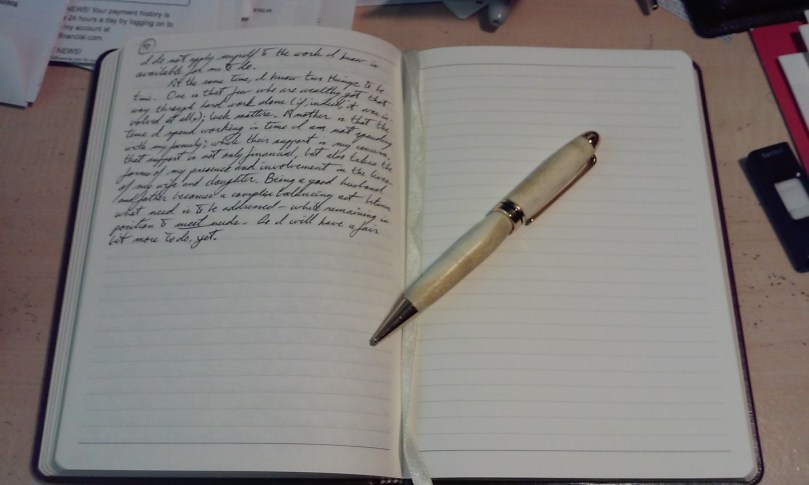 NEWS! Your payment history is
24 hours a day by logging on to
my account at
financial.com.
NEWS!
I do not apply myself to the work I know is
available for me to do.
At the same time, I know two things to be
true. One is that few who are wealthy got that
way through hard work alone (if, indeed, it was in-
volved at all); luck matters. Another is that the
time I spend working is time I am not spending
with my family; while their support is my concern,
that support is not only financial, but also takes the
forms of my presence and involvement in the lives
of my wife and daughter. Being a good husband
and father becomes a complex balancing act between
what need is to be addressed—while remaining in
position to meet needs. So I will have a fair
bit more to do, yet.